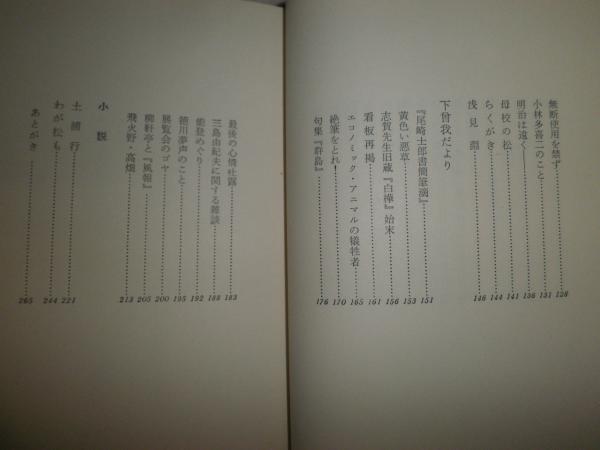 無断使用を禁ず……128
小林多喜二のこと……131
明治は遠く――……136
母校の松……141
らくがき……144
浅見淵……146
下曾我だより
『尾崎士郎書簡筆滴』……151
黄色い悪草……153
志賀先生旧蔵『白樺』始末……156
看板再掲……161
エコノミック・アニマルの犠牲者……165
絶筆をとれ！……170
句集『群島』……176
最後の心情吐露……183
三島由紀夫に関する雑談……188
能登めぐり……192
徳川夢声のこと……195
展覧会のゴヤ……200
柳軒亭と『風報』……205
飛火野・高畑……213
小説
土浦行……221
わが松も……244
あとがき……265